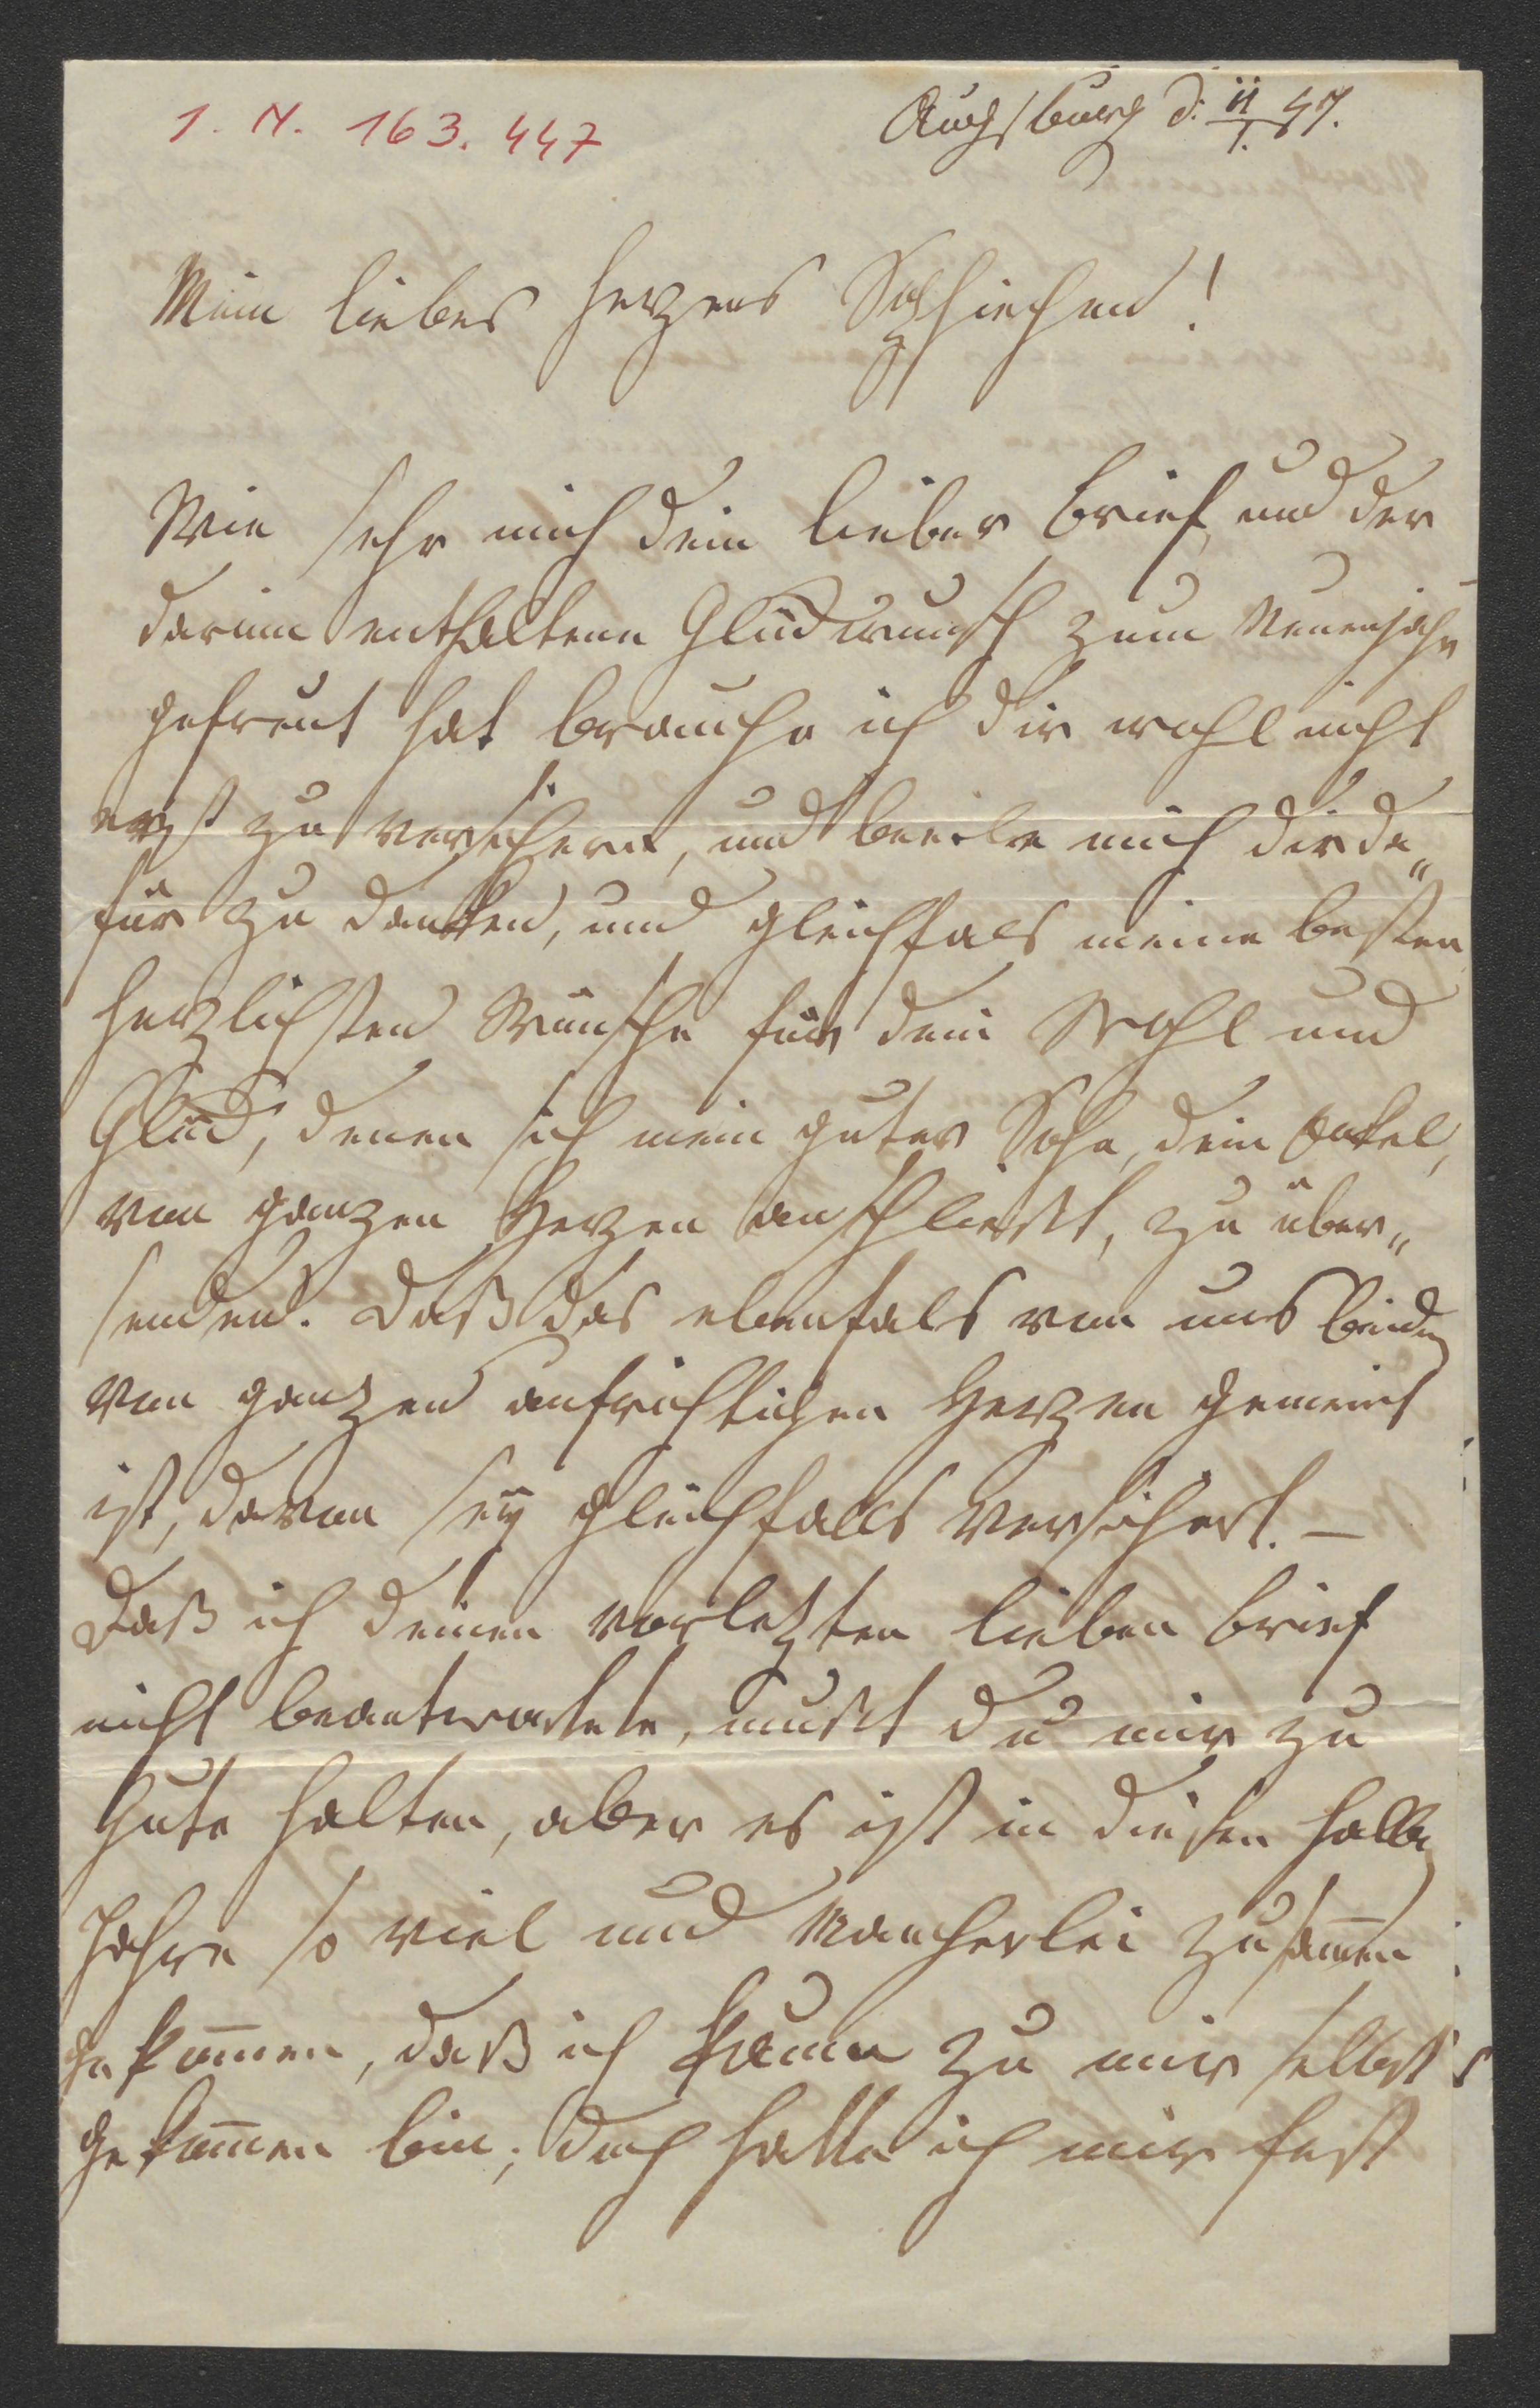 I. N. 163.447
Augsburg d. 11/1. 47.
Mein liebes Herzens Sophiechen!
Wie sehr mich dein lieber Brief und der
darinn enthaltene Glückwunsch zum Neuenjahr
gefreut hat brauche ich dir wohl nicht
erst zu versichern, und beeile mich dir da„
für zu danken, und gleichfals meine besten
herzlichsten Wünsche für dein Wohl und
Glück, denen sich mein guter Sohn, dein Onkel,
von ganzen Herzen anschliesst, zu über„
senden. Daß das ebenfals von uns beiden
von ganzen aufrichtigen Herzen gemeint
ist, davon sey gleichfalls versichert. –
Daß ich deinen vorletzten lieben Brief
nicht beantwortete, mußt du mir zu
Gute halten, aber es ist in diesen halben
Jahre so viel und Mancherlei zusam̄en
gekom̄en, daß ich kaum zu mir selbst
gekom̄en bin; doch hatte ich mir fest